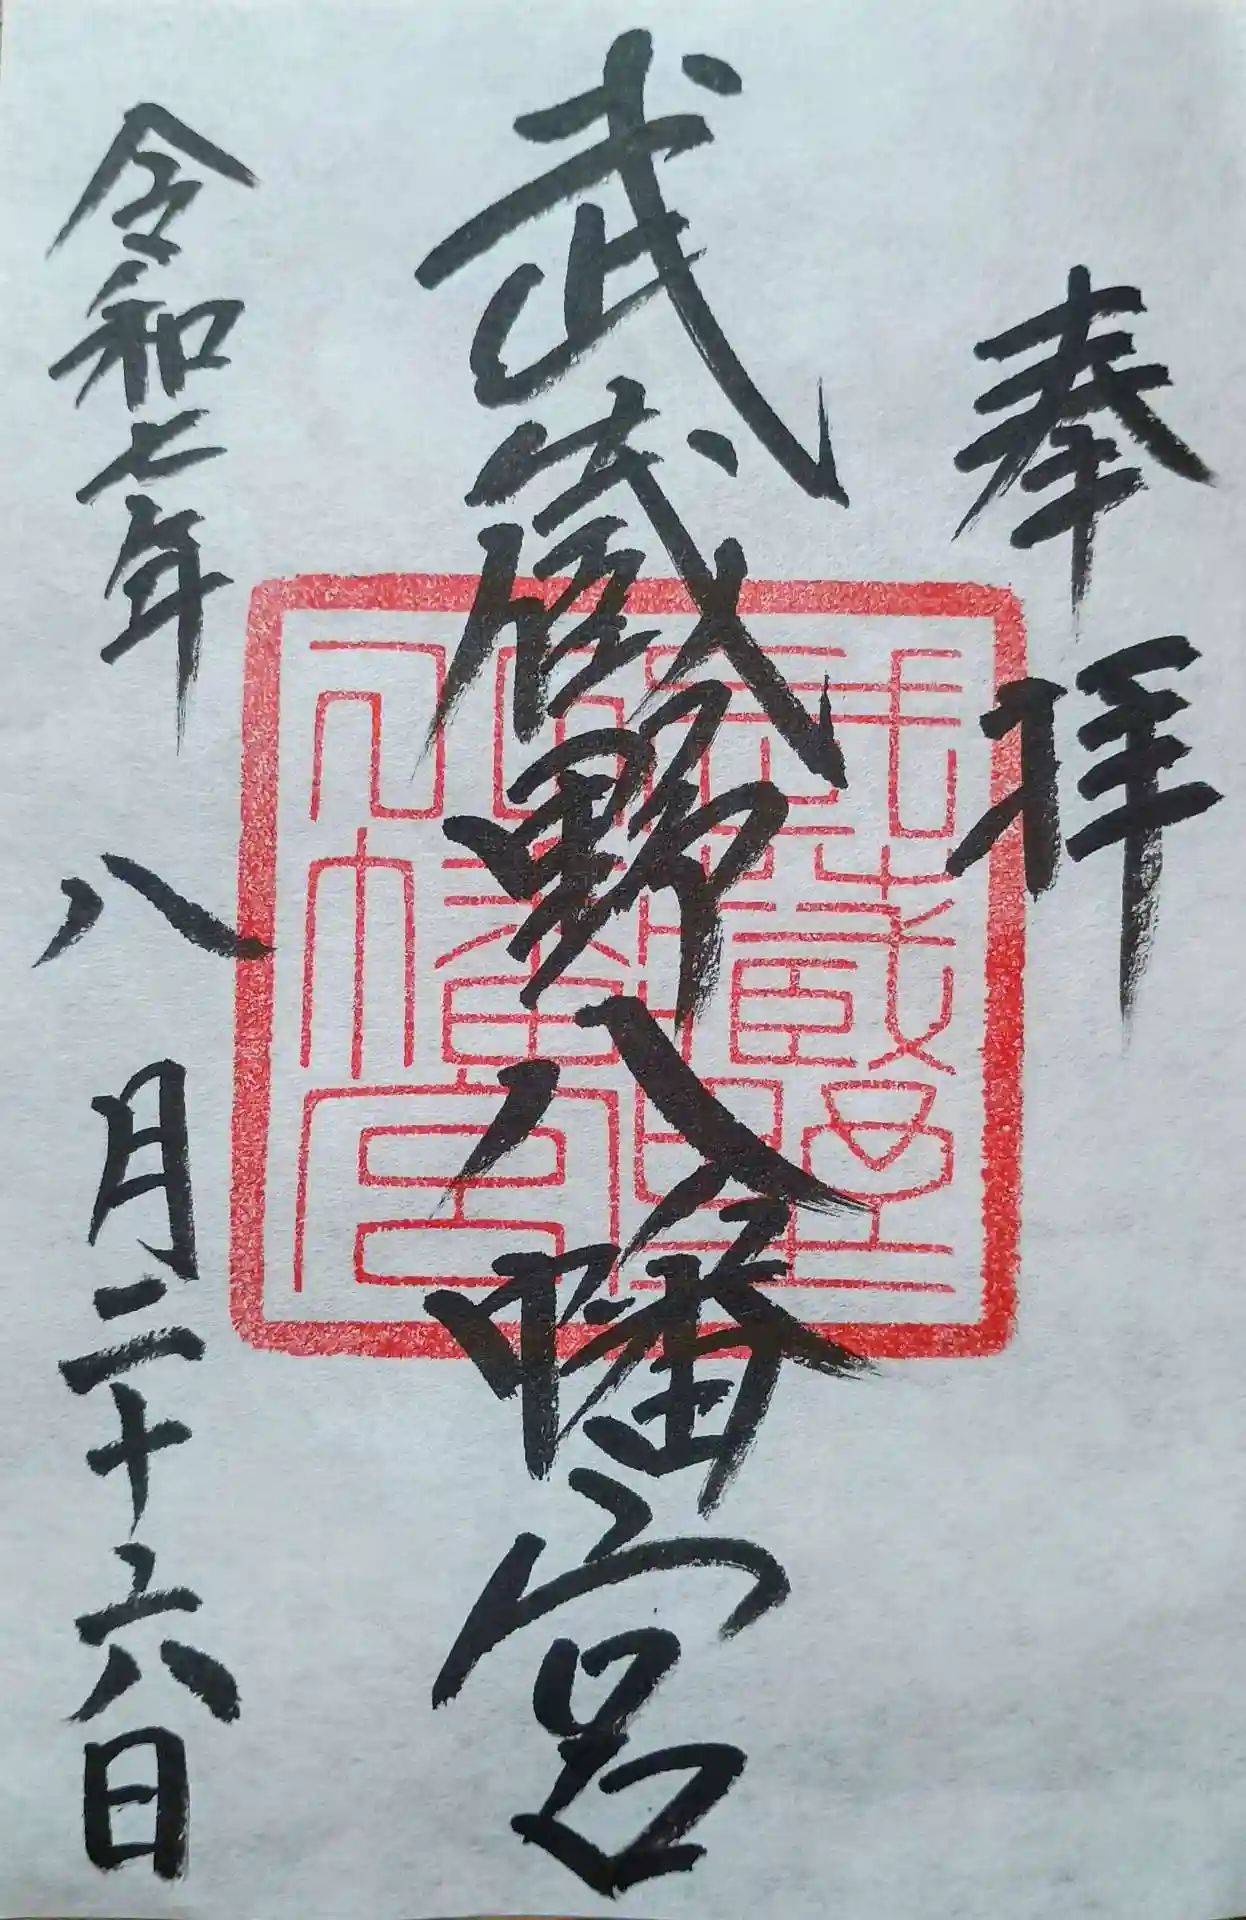 奉拝
武蔵野八幡宮
武蔵野
八幡宮
令和七年八月二十六日